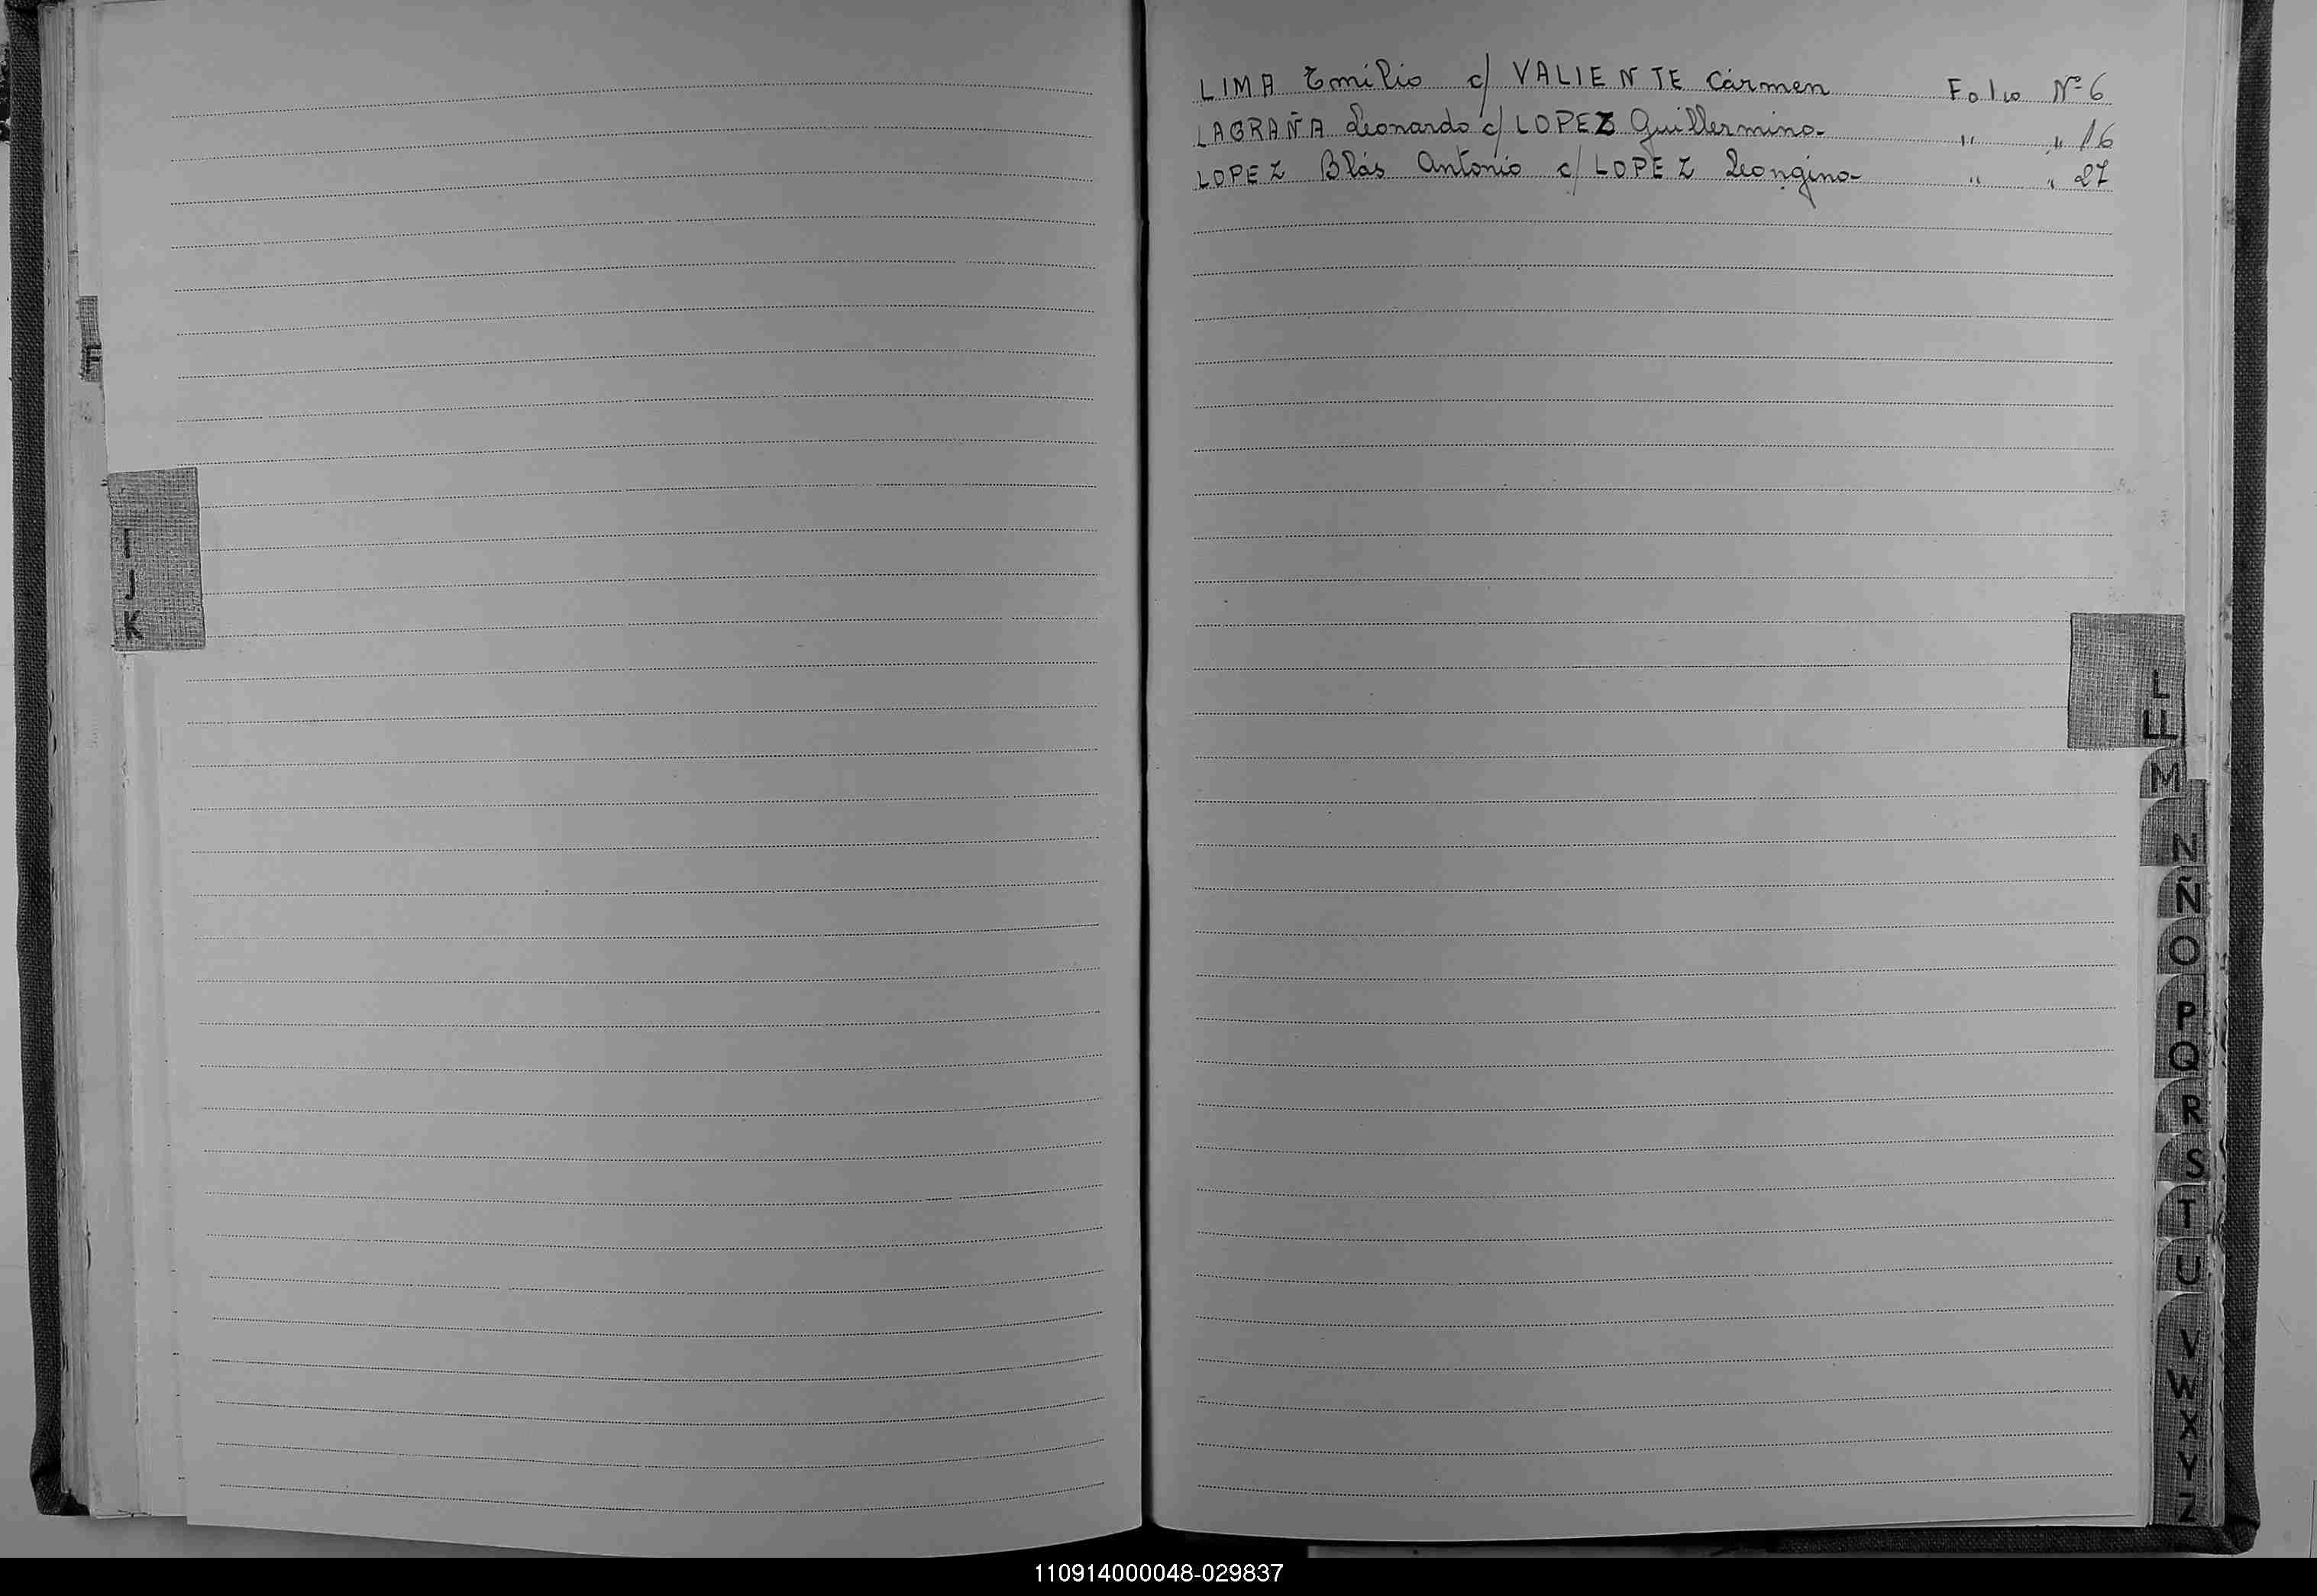 LIMA Emilio c/ VALIENTE Cármen Folio Nº 6
LAGRAÑA Leonardo c/ LOPEZ Guillermina- " " 16
LOPEZ Blás Antonio c/ LOPEZ Leongina- " " 27
F
I
J
K
L
LL
M
N
Ñ
O
P
Q
R
S
T
U
V
W
X
Y
Z
110914000048-029837